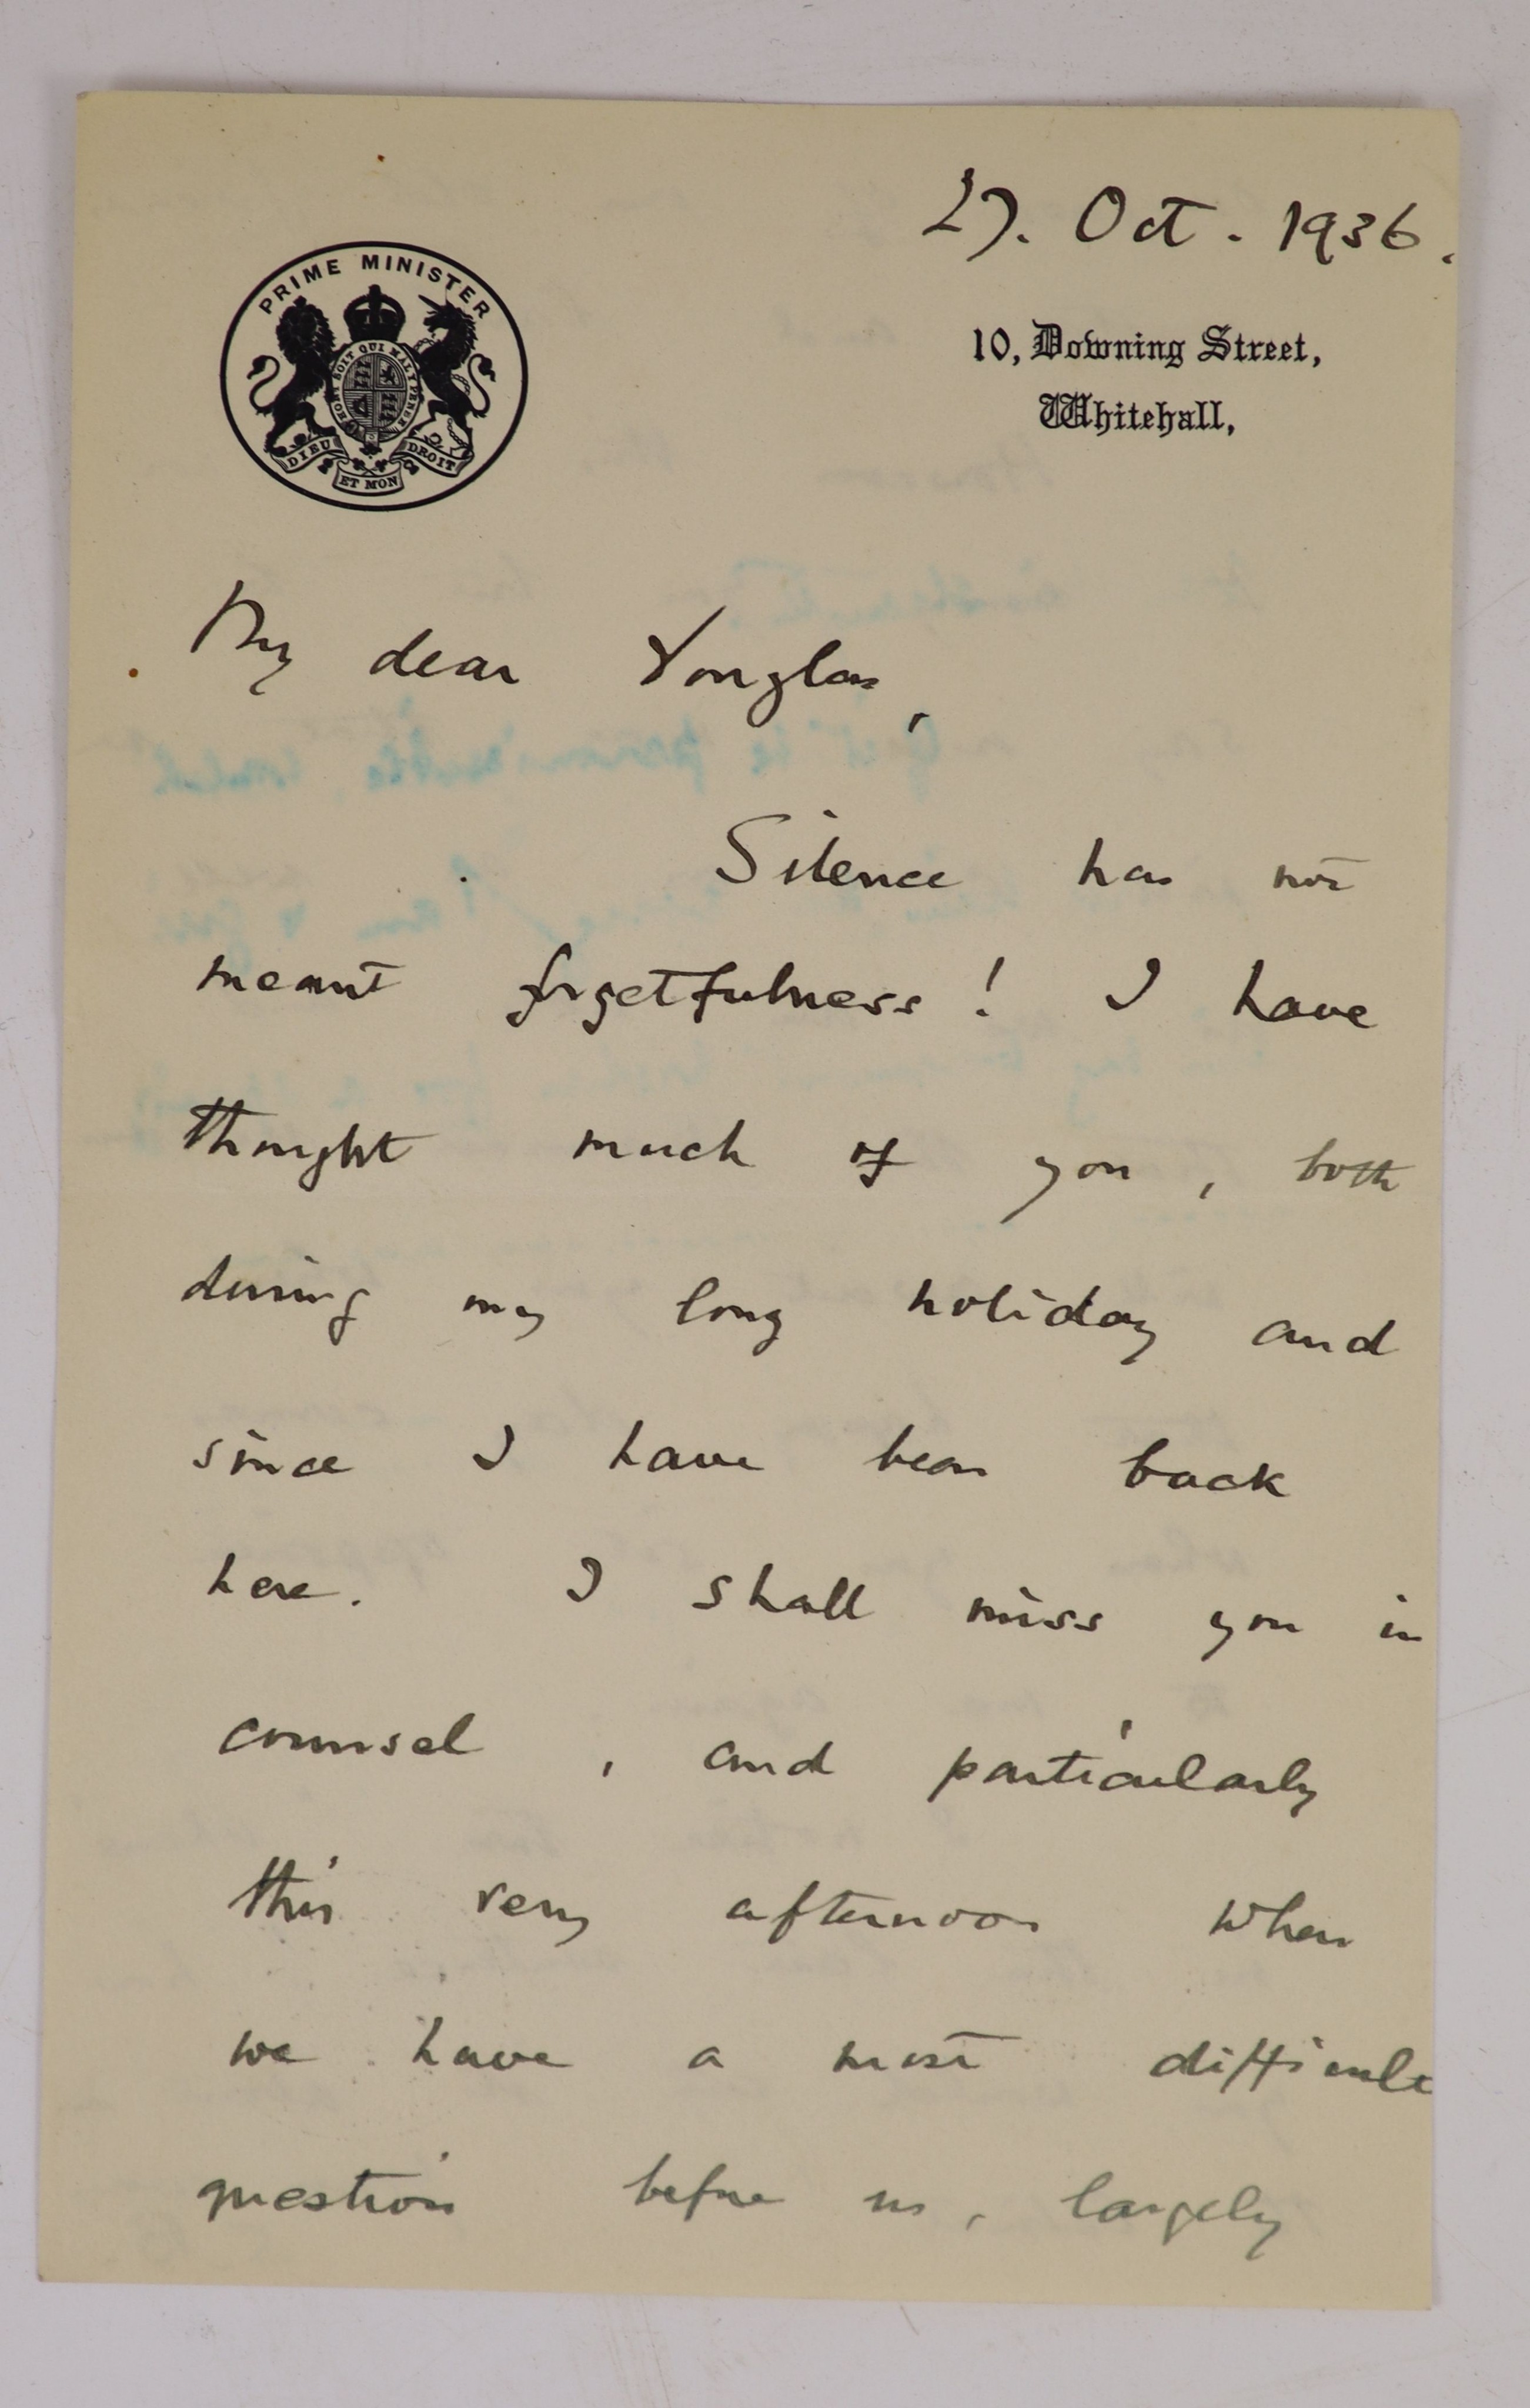 27. Oct. 1936.
PRIME MINISTER
HONI SOIT QUI MAL Y PENSE
DIEU ET MON DROIT
10, Downing Street,
Whitehall,
My dear Douglas,
Silence has not
meant forgetfulness! I have
thought much of you, both
during my long holiday and
since I have been back
here. I shall miss you in
counsel, and particularly
this very afternoon when
we have a most difficult
question before us, largely